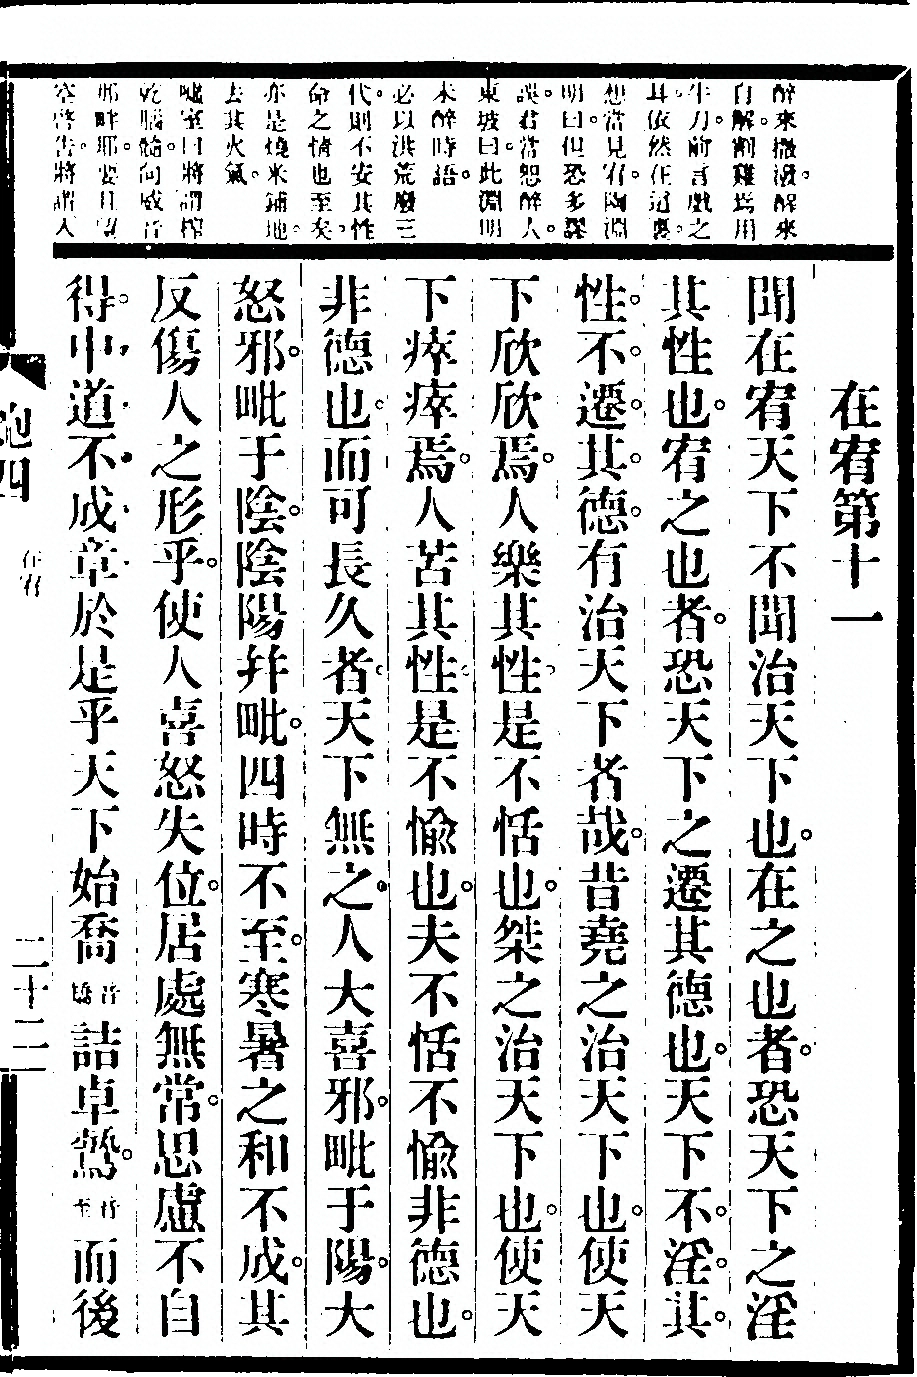 醉來撒潑。醒來
自解。割雞焉用
牛刀。前言戲之
耳。依然在這裏。
想當見宥。陶淵
明曰。但恐多謬
誤。君當恕醉人。
東坡曰。此淵明
未醉時語。
必以洪荒廢三
代。則不安其性
命之情也至矣。
亦是燒米鋪地。
去其火氣。
室曰將謂
乾腦髓向威音
那畔耶。要且
將謂入
在宥第十一
聞在宥天下不聞治天下也。在之也者。恐天下之淫
其性也。宥之也者。恐天下之遷其德也。天下不。淫。其。
性。不。遷。其。德。有治天下者哉。昔堯之治天下也。使天
下欣欣焉。人樂其性。是不恬也。桀之治天下也。使天
下瘁瘁焉。人苦其性。是不愉也。夫不恬不愉非德也。
非德也。而可長久者。天下無之。人大喜邪。毗于陽。大
怒邪。毗于陰。陰陽幷毗。四時不至。寒暑之和不成。其
反傷人之形乎。使人喜怒失位。居處無常。思慮不自
得。中道不成章於是乎天下始喬音矯詰卓鷙。音至而後
在宥
二十二